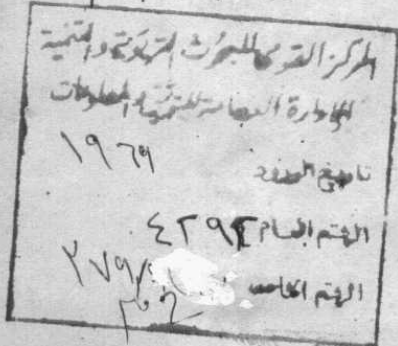 المركز القومي للبحوث التربوية والتنمية
الإدارة العامة للتوثيق والمعلومات
تاريخ الورود ١٩٦٩
الرقم العام ٤٢٩٢
الرقم الخاص ٣٧٩/